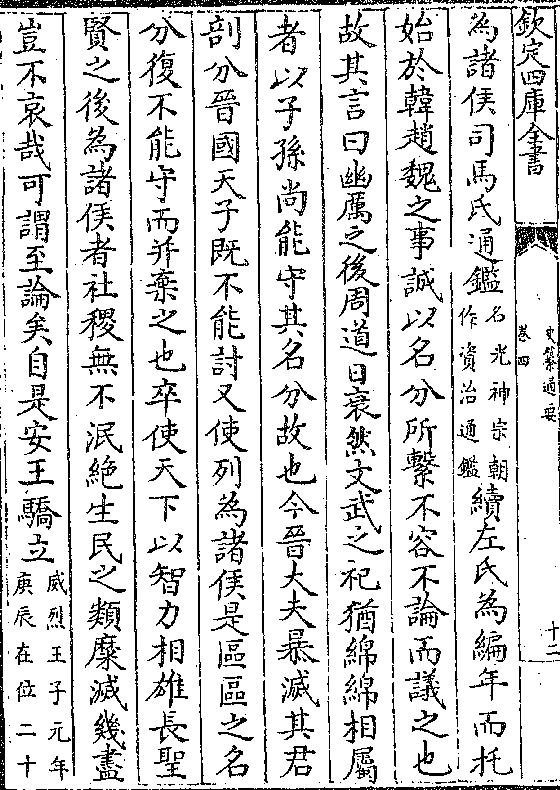 欽定四庫全書
史纂通要
卷四
十二
為諸侯司馬氏通鑑名光神宗朝作資治通鑑續左氏為編年而托
始於韓趙魏之事誠以名分所繫不容不論而議之也
故其言曰幽厲之後周道日衰然文武之祀猶綿綿相屬
者以子孫尚能守其名分故也今晉大夫暴滅其君
剖分晉國天子既不能討又使列為諸侯是區區之名
分復不能守而并棄之也卒使天下以智力相雄長聖
賢之後為諸侯者社稷無不泯絶生民之類糜滅幾盡
豈不哀哉可謂至論矣自是安王驕立威烈王子元年庚辰在位二十